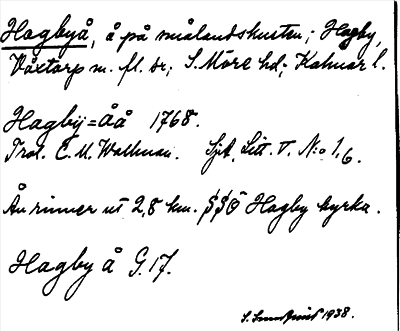 Hagbyå, å på smålandskusten; Hagby,
Våxtorp m. fl. sr; S. Möre hd; Kalmar l.
Hagbÿ=åå 1768.
Prot. E. M. Wallman. Sjk. Litt. V. N:o 1,6.
Ån rinner ut 2,8 km. SSÖ Hagby kyrka.
Hagby å G. 17.
1938.